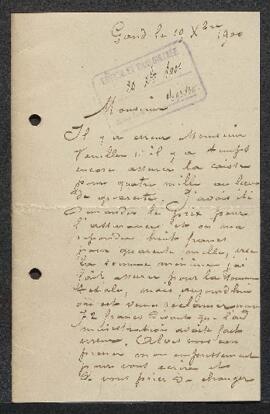 Gand le 19 Xbre 1900
20 Xbre 1900
Monsieur
Il y a erreur Monsieur
Veuillez s'il y a temps
encore assurer la caisse
pour quatre mille au lieu
de quarante. J'avais
demandé le prix pour
l'assurance et on m'a
répondu huit francs
pour quarante mille,
la somme minime j'ai
fait assurer pour la somme
totale, mais aujourd'hui
on est venu réclamer
72 francs disant que l'ad
ministration avait fait
erreur. Alors vous
prie de changer